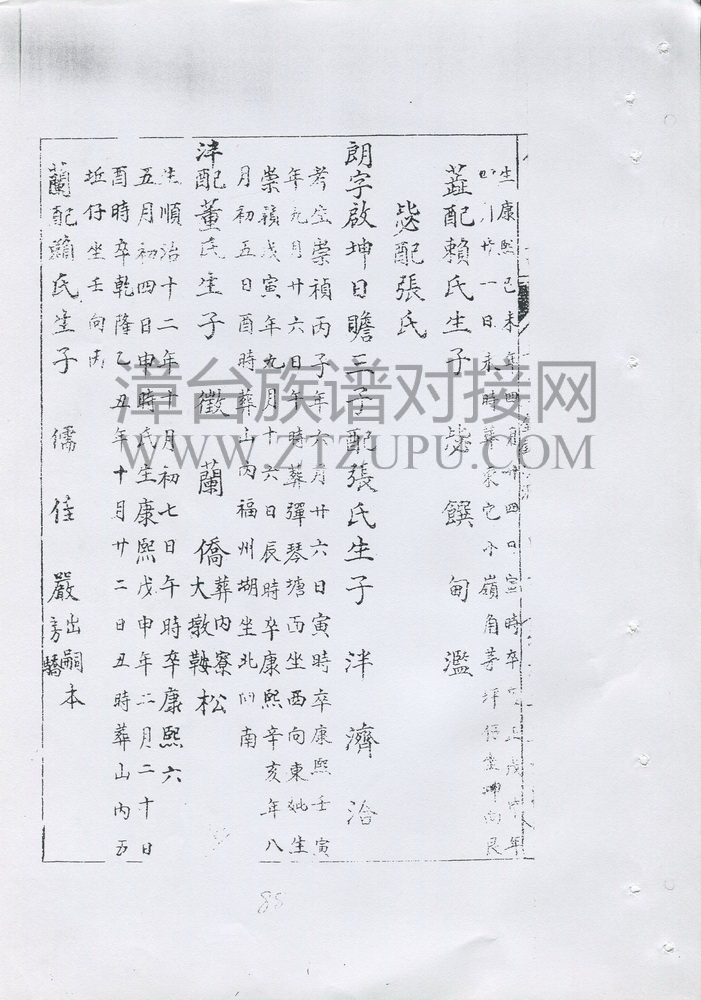 生康熙己未年四月十四日時卒
月廿一日未時葬東它小嶺角菁坪仔坐坤向艮
葢配賴氏生子 毖 饌 甸 濫
毖配張氏
朗字啟坤日瞻三子配張氏生子 泮 濟 治
考生崇禎丙子年六月廿六日寅時卒康熙壬寅
年九月廿六日午時葬彈琴塘西坐西向東妣生
崇禎戊寅年九月十六日辰時卒康熙辛亥年八
月初五日酉時葬山內福州湖坐北向南
泮配董氏生子 徵 蘭 僑 葬內寮松大墩鞍
生順治十二年十月初七日午時卒康熙六
五月初四日申時氏生康熙戊申年二月二十日
酉時卒乾隆乙丑年十月廿二日丑時葬山內五
坵仔坐壬向丙
蘭配蕭氏生子 儒 僅 嚴 出嗣本房驕
漳台族谱对接网
WWW.ZTZUPU.COM
88